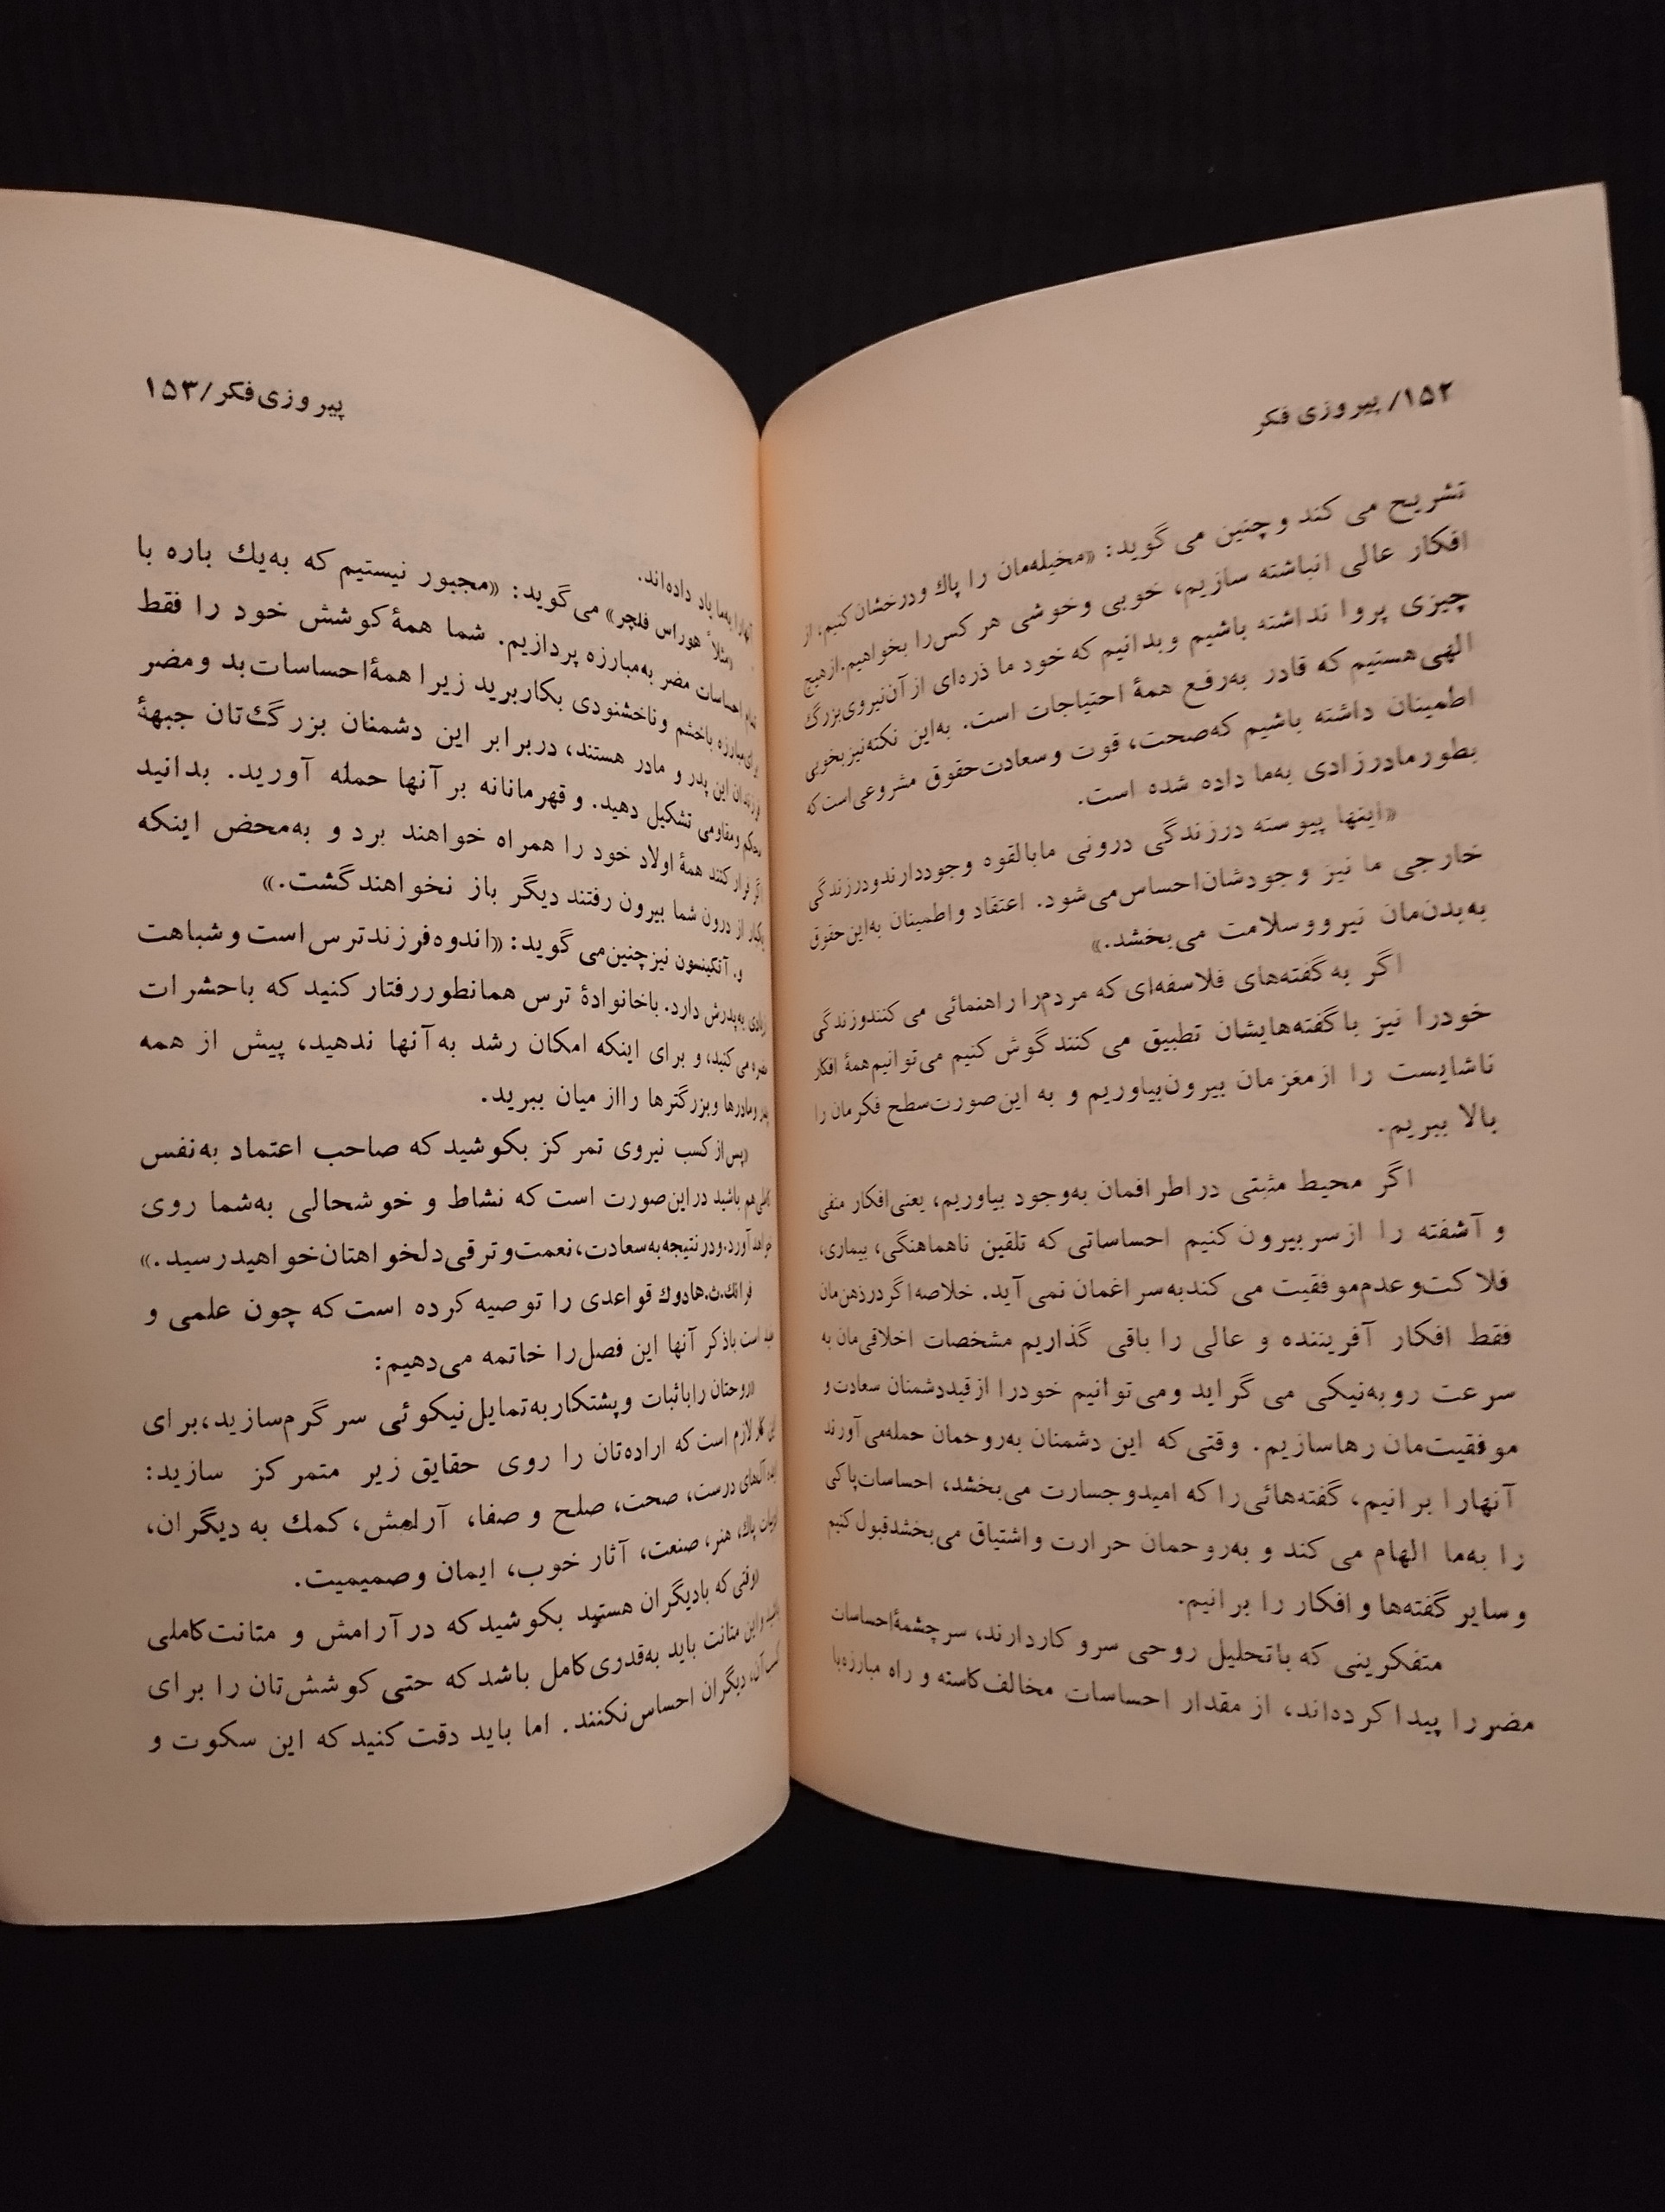 ۱۵۲/ پیروزی فکر
تشریح می کند و چنین می گوید: «مخیله‌مان را پاك و درخشان کنیم، از
افکار عالی انباشته سازیم، خوبی و خوشی هر کس را بخواهیم. از هیچ
چیزی پروا نداشته باشیم و بدانیم که خود ما ذره‌ای از آن نیروی بزرگ
الهی هستیم که قادر به‌رفع همهٔ احتیاجات است. به‌این نکته نیز بخوبی
اطمینان داشته باشیم که صحت، قوت و سعادت حقوق مشروعی است که
بطور مادرزادی به‌ما داده شده است.
«اینها پیوسته در زندگی درونی ما بالقوه وجود دارند و در زندگی
خارجی ما نیز وجودشان احساس می‌شود. اعتقاد و اطمینان به‌این حقوق
به‌بدن‌مان نیرو و سلامت می‌بخشد.»
اگر به گفته‌های فلاسفه‌ای که مردم را راهنمائی می کنند و زندگی
خود را نیز با گفته‌هایشان تطبیق می کنند گوش کنیم می‌توانیم همهٔ افکار
ناشایست را از مغزمان بیرون بیاوریم و به این صورت سطح فکرمان را
بالا ببریم.
اگر محیط مثبتی در اطرافمان به‌وجود بیاوریم، یعنی افکار منفی
و آشفته را از سر بیرون کنیم احساساتی که تلقین ناهماهنگی، بیماری،
فلاکت و عدم موفقیت می کند به سراغمان نمی آید. خلاصه اگر در ذهن‌مان
فقط افکار آفریننده و عالی را باقی گذاریم مشخصات اخلاقی‌مان به
سرعت رو به‌نیکی می گراید و می‌توانیم خود را از قید دشمنان سعادت و
موفقیت‌مان رها سازیم. وقتی که این دشمنان به‌روحمان حمله می آورند
آنها را برانیم، گفته‌هائی را که امید و جسارت می‌بخشد، احساسات پاکی
را به‌ما الهام می کند و به‌روحمان حرارت و اشتیاق می‌بخشد قبول کنیم
و سایر گفته‌ها و افکار را برانیم.
متفکرینی که با تحلیل روحی سر و کار دارند، سرچشمهٔ احساسات
مضر را پیدا کرده‌اند، از مقدار احساسات مخالف کاسته و راه مبارزه با
پیروزی فکر/۱۵۳
آنها را به‌ما یاد داده‌اند.
«مثلاً هوراس فلچر» می گوید: «مجبور نیستیم که به‌یك باره با
تمام احساسات مضر به‌مبارزه پردازیم. شما همهٔ کوشش خود را فقط
برای مبارزه با خشم و ناخشنودی بکار برید زیرا همهٔ احساسات بد و مضر
فرزندان این پدر و مادر هستند، در برابر این دشمنان بزرگ‌تان جبههٔ
محکم و مقاومی تشکیل دهید. و قهرمانانه بر آنها حمله آورید. بدانید
اگر فرار کنند همهٔ اولاد خود را همراه خواهند برد و به‌محض اینکه
یکبار از درون شما بیرون رفتند دیگر باز نخواهند گشت.»
و. آتکینسون نیز چنین می گوید: «اندوه فرزند ترس است و شباهت
زیادی به‌پدرش دارد. با خانوادهٔ ترس همانطور رفتار کنید که با حشرات
مضره می کنید، و برای اینکه امکان رشد به آنها ندهید، پیش از همه
پدر و مادرها و بزرگترها را از میان ببرید.
«پس از کسب نیروی تمرکز بکوشید که صاحب اعتماد به‌نفس
کاملی هم باشید در این صورت است که نشاط و خوشحالی به‌شما روی
خواهد آورد. و در نتیجه به سعادت، نعمت و ترقی دلخواهتان خواهید رسید.»
فرانك.ث.هادوك قواعدی را توصیه کرده است که چون علمی و
مفید است با ذکر آنها این فصل را خاتمه می‌دهیم:
«روحتان را با ثبات و پشتکار به تمایل نیکوئی سرگرم سازید، برای
این کار لازم است که اراده‌تان را روی حقایق زیر متمرکز سازید:
ایده آلهای درست، صحت، صلح و صفا، آرامش، کمك به دیگران،
پاك، هنر، صنعت، آثار خوب، ایمان و صمیمیت.
«وقتی که با دیگران هستید بکوشید که در آرامش و متانت کاملی
باشید و این متانت باید به‌قدری کامل باشد که حتی کوشش‌تان را برای
کسب آن، دیگران احساس نکنند. اما باید دقت کنید که این سکوت و